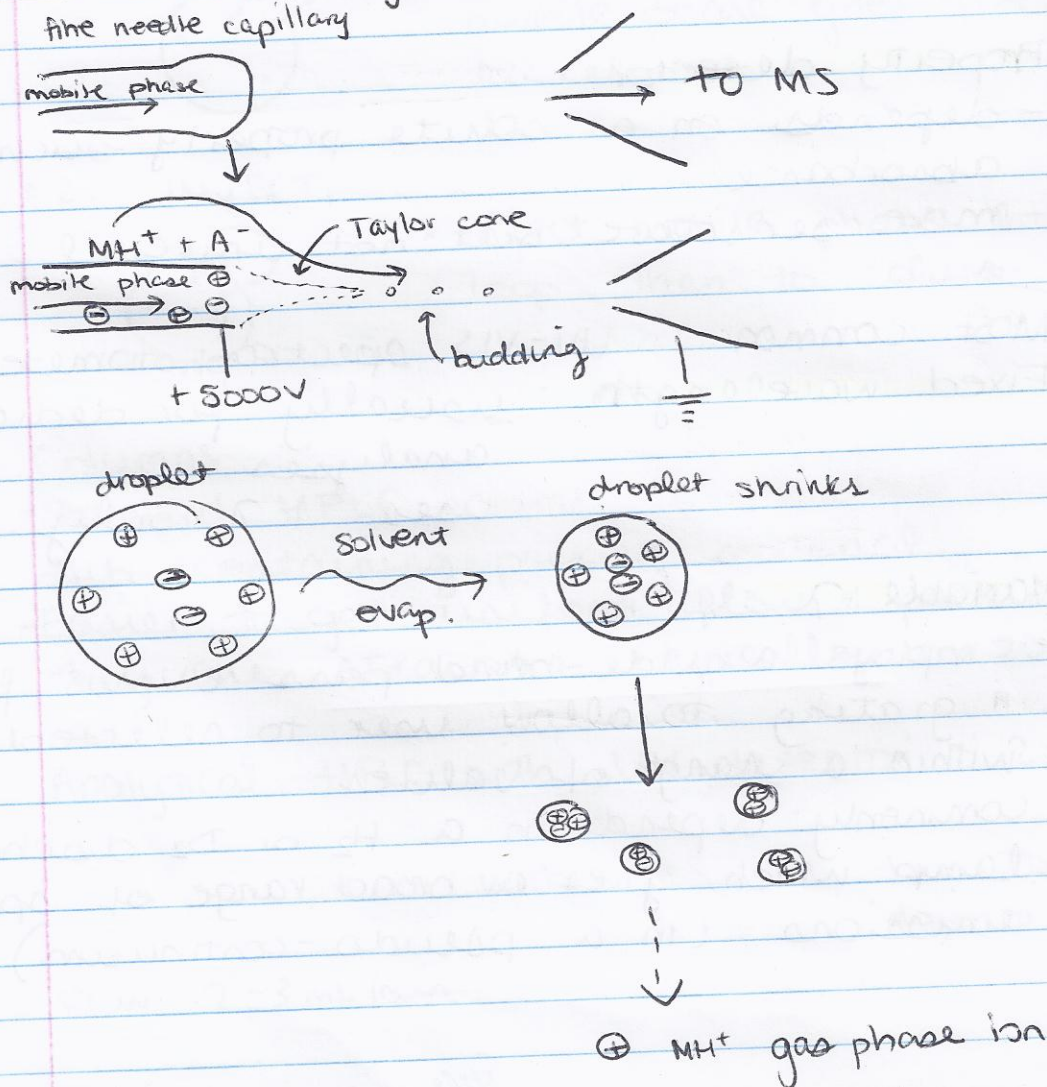 fine needle capillary
mobile phase
to MS
MH⁺ + A⁻
Taylor cone
mobile phase ⊕
⊖ ⊕ ⊖
budding
+5000V
droplet
droplet shrinks
solvent
evap.
⊕ MH⁺ gas phase ion